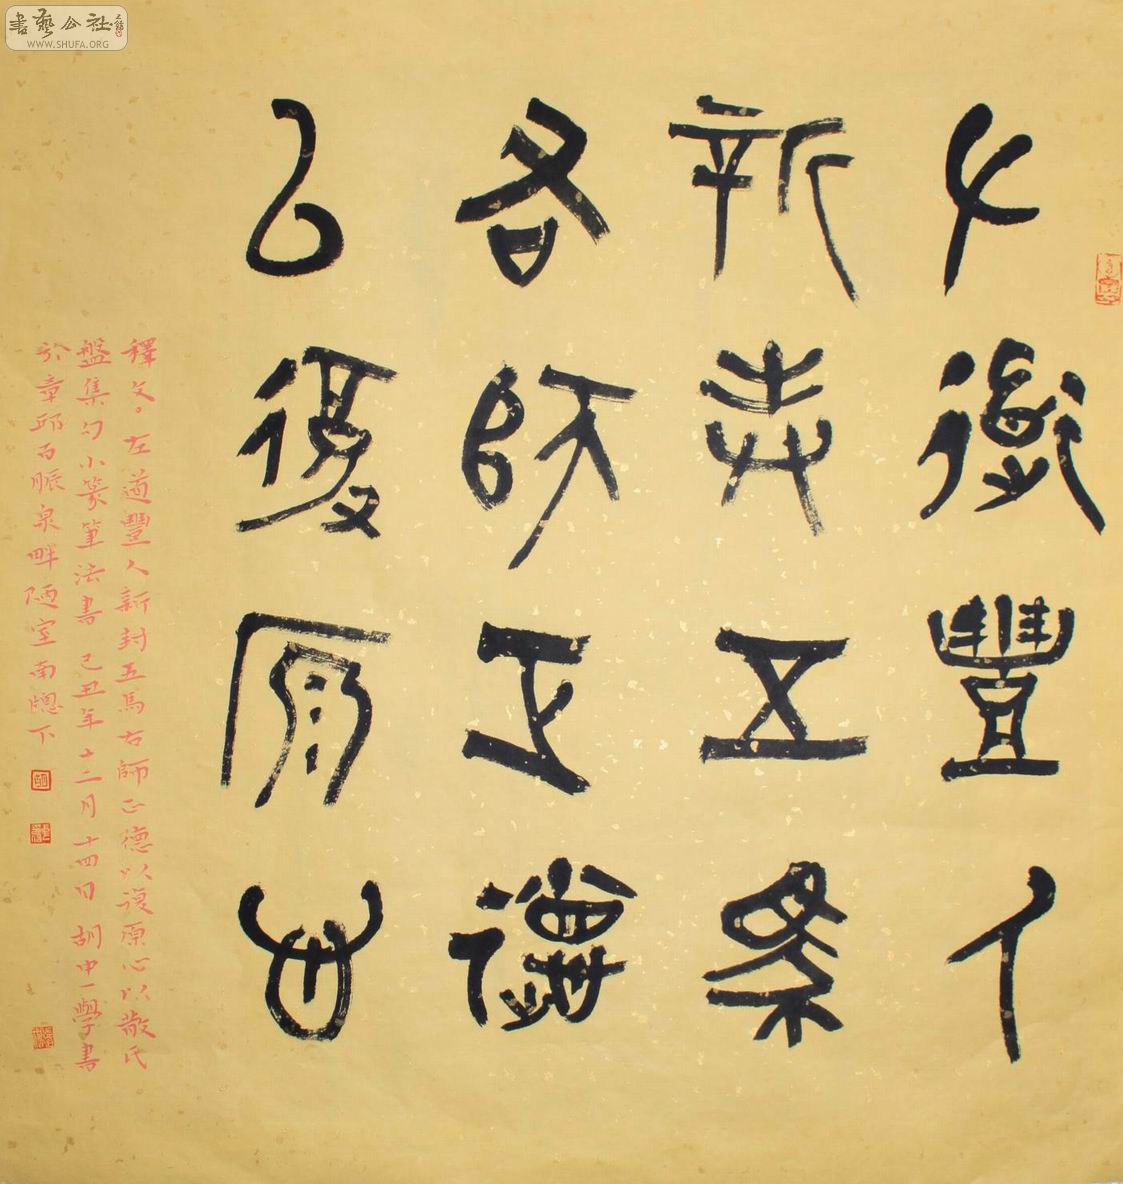 書藝公社
WWW.SHUFA.ORG
左道豐人
新封五馬
右師正德
以復原心
釋文。左道豐人新封五馬右師正德以復原心以散氏
盤集句小篆筆法書 己丑年十二月十四日 胡中一學書
於章邱百脈泉畔陋室南牕下